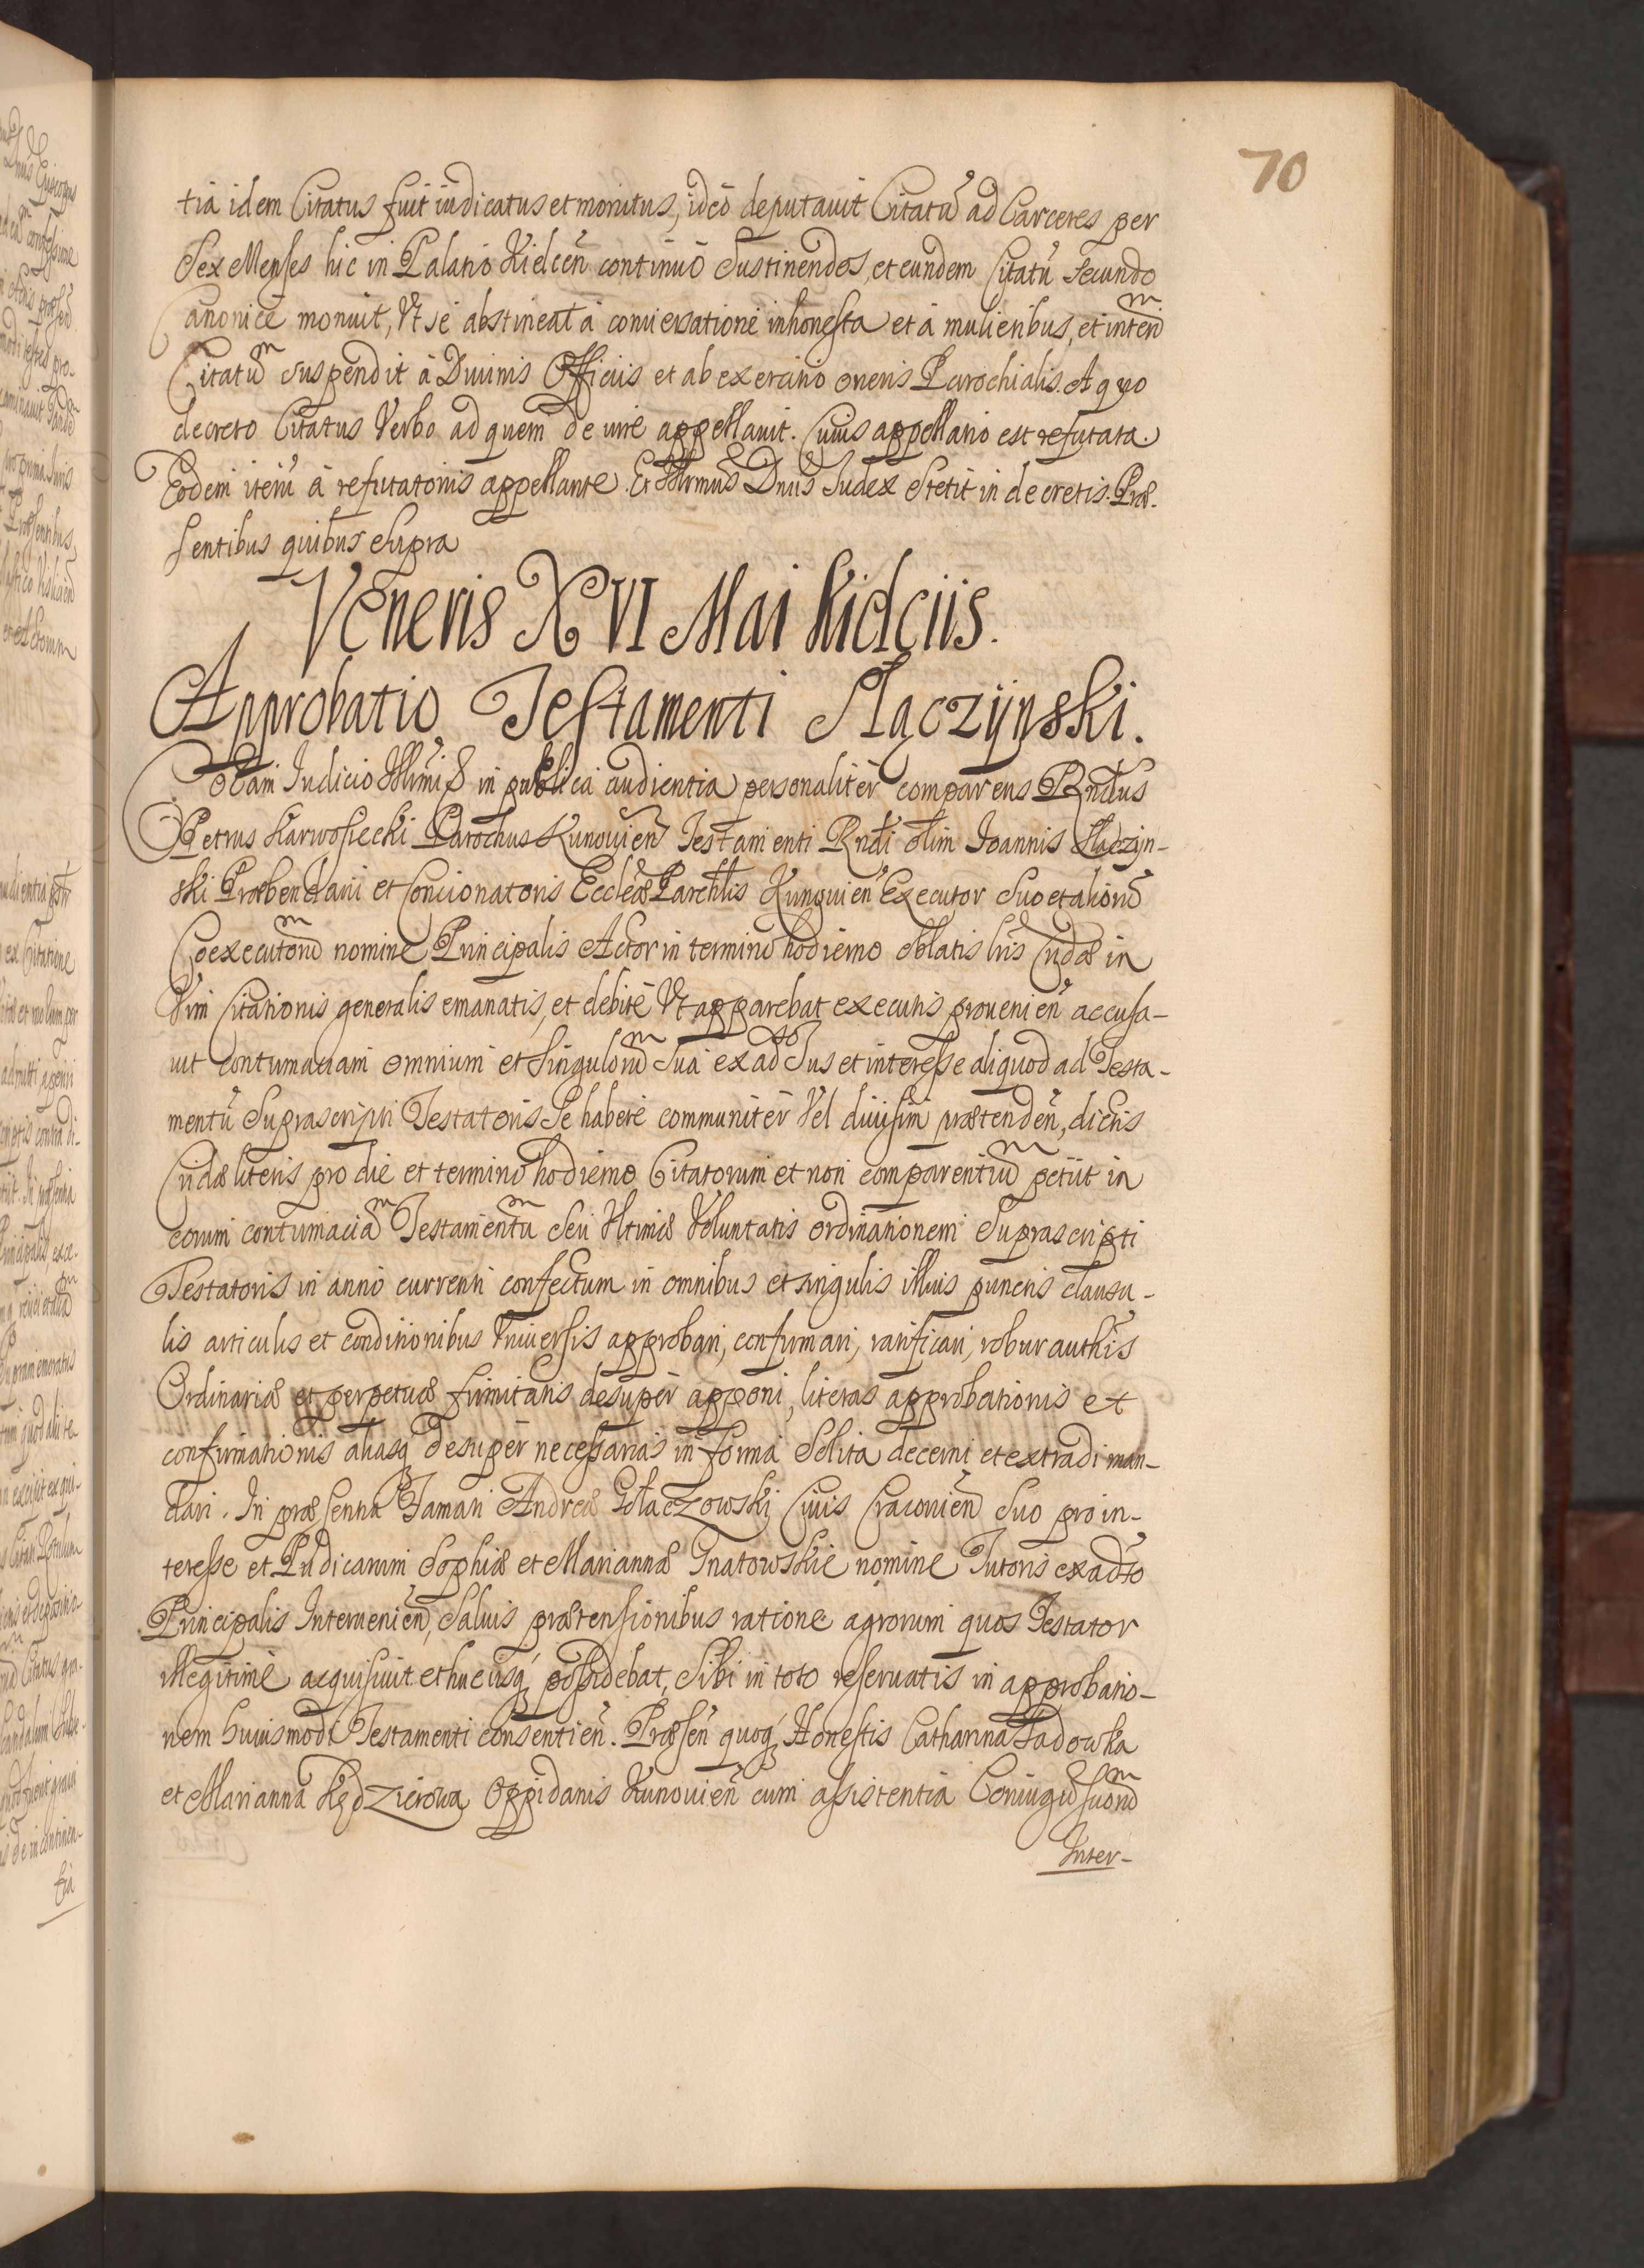 70
tia idem Citatus fuit iudicatus et monitus, ideo deputauit Citatũ ad Carceres per
Sex Menses hic in Palatio Kielceñ continuò Sustinendos, et eundem Citatũ secundo
Canonice monuit, Vt se abstineat à conuersatione inhonesta et à mulieribus, et interim
Citatum suspendit à Diuinis Officijs et ab exercitio oneris Parochialis. A quo
decreto Citatus Verbo ad quem de iure appellauit. Cuius appellatio est refutata.
Eodem iterũ à refutatorijs appellante. Et Illrmus Dnus Iudex Stetit in decretis. Præ-
sentibus quibus Supra
Veneris XVI Mai Kielciis.
Approbatio Testamenti Słączyński.
Coram Iudicio Illrmi S in publica audientia personalitèr comparens Rndus
Petrus Karwosiecki Parochus Kunouieñ Testamenti Rndi olim Ioannis Słączyn-
ski Præbendarij et Concionatoris Eccleæ Parchlis Kunouieñ Executor Suo et aliorũ
Coexecutorũ nomine Principalis Actor in termino hodierno oblatis lris Cridæ in
Vim Citationis generalis emanatis, et debitè Vt apparebat executis prouenieñ accusa-
uit contumaciam omnium et Singulorũ Sua ex adso Ius et interesse aliquod ad Testa-
mentũ Suprascripti Testatoris Se habere communitèr Vel diuisim prætendeñ, dictis
Cridæ literis pro die et termino hodierno Citatorum et non comparentiũ petijt in
eorum contumaciã Testamentũ Seu Vltimæ Voluntatis ordinationem Suprascripti
Testatoris in anno currenti confectum in omnibus et singulis illius punctis clausu-
lis articulis et conditionibus Vniuersis approbari, confirmari, ratificari, robur authis
Ordinariæ et perpetuæ firmitatis desupèr apponi, literas approbationis et
confirmationis aliasq desupèr necessarias in forma Solita decerni et extradi man-
dari. In præsentia Famati Andreæ Głaczowski Ciuis Cracouieñ Suo pro in-
teresse et Pudicarum Sophiæ et Mariannæ Gnatowskie nomine Tutoris ex adso
Principalis Interuenieñ, Saluis prætensionibus ratione agrorum quos Testator
illegitimè acquisiuit et hucusq possidebat, Sibi in toto reseruatis in approbatio-
nem huiusmodi Testamenti consentieñ. Præseñ quoq Honestis Catharina Sadowka
et Marianna Kędzierowa Oppidanis Kunouieñ cum assistentia Coniugũ suorũ
Inter-